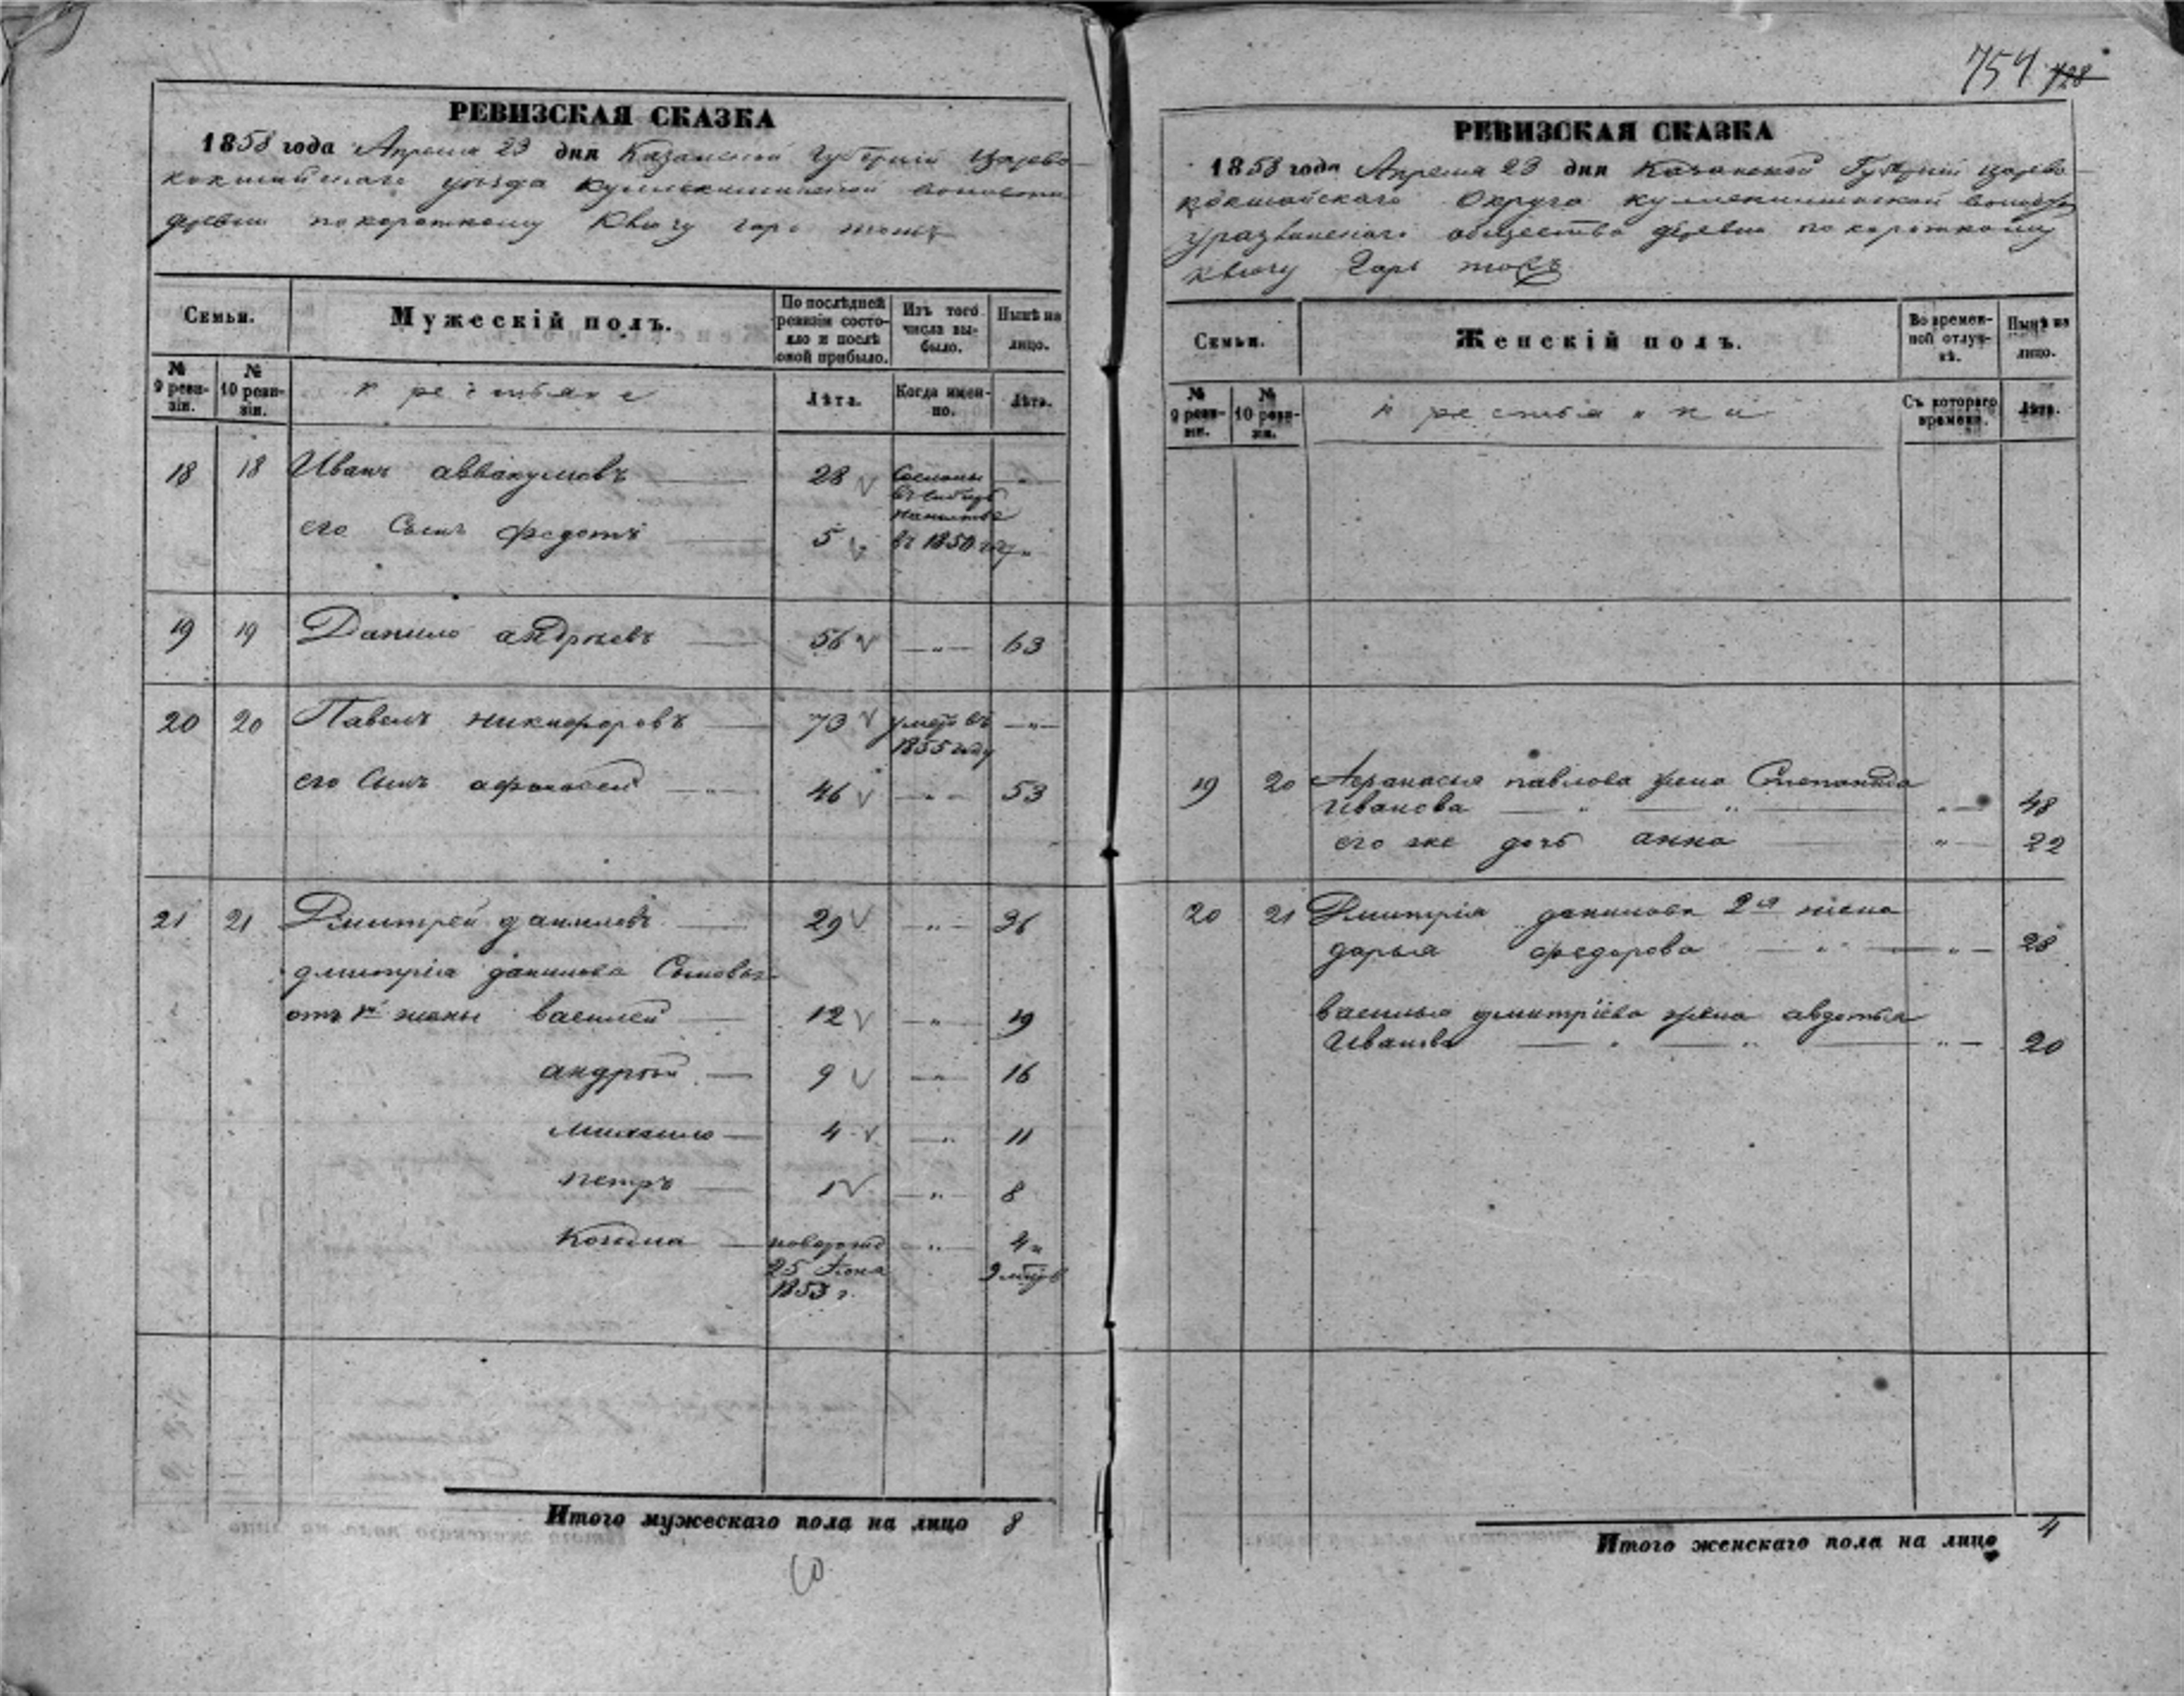 754 728
РЕВИЗСКАЯ СКАЗКА
1858 года Апреля 23 дня Казанской Губерніи Царево
кокшайскаго уѣзда кулле волости
деревни по короткому Ключу
Семьи.
Мужескій полъ.
По послѣдней ревизіи состояло и послѣ оной прибыло.
Изъ того числа выбыло.
Нынѣ на лицо.
№ 9 ревизіи.
№ 10 ревизіи.
крестьяне
Лѣта.
Когда именно.
Лѣта.
18 18 Иванъ аввакумовъ 28 Сосланы „
въ сибирь
его Сынъ федотъ 5 въ 1850 году „
19 19 Данило андреевъ 56 „ 63
20 20 Павелъ никифоровъ 73 умеръ въ „
1855 году
его Сынъ афонасей „ 46 „ 53
21 21 Дмитрей даниловъ 29 „ 36
дмитрія данилова Сыновья
отъ 1й жены василей 12 „ 19
андрей 9 „ 16
михаило 4 „ 11
петръ 1 „ 8
Козма новорожд „ 4 „
25 Іюня 9 мѣсяц
1853 г.
Итого мужескаго пола на лицо 8
РЕВИЗСКАЯ СКАЗКА
1858 года Апреля 23 дня Казанской Губерніи Царево
кокшайскаго Округа волости
общества деревни по короткому
ключу
Семьи.
Женскій полъ.
Во временной отлучкѣ.
Нынѣ на лицо.
№ 9 ревизіи.
№ 10 ревизіи.
крестьянки
Съ котораго времени.
Лѣта.
19 20 Афанасья павлова жена Степанида
Иванова „ „ „ 48
его же дочь анна „ 22
20 21 Дмитрія данилова 2я жена
дарья федорова „ „ 28
василья дмитріева жена авдотья
Иванова „ „ „ 20
Итого женскаго пола на лицо 4